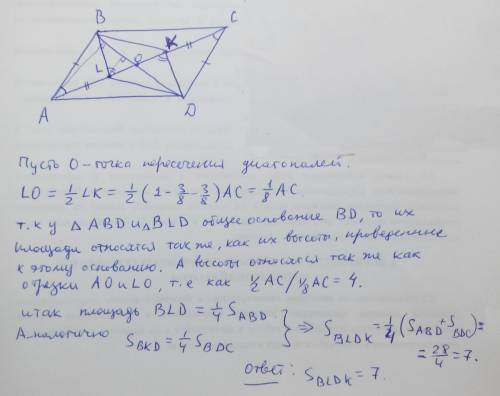 B
C
K
L
O
A
D
Пусть O - точка пересечения диагоналей.
LO = 1/2 LK = 1/2 (1 - 3/8 - 3/8) AC = 1/8 AC
т.к у △ ABD и △ BLD общее основание BD, то их
площади относятся так же, как их высоты, проведенные
к этому основанию. А высоты относятся так же как
отрезки AO и LO, т.е как 1/2 AC / 1/8 AC = 4.
итак площадь BLD = 1/4 S_ABD
Аналогично S_BKD = 1/4 S_BDC } ⇒ S_BLDK = 1/4 (S_ABD + S_BDC) =
= 28/4 = 7.
ответ: S_BLDK = 7.